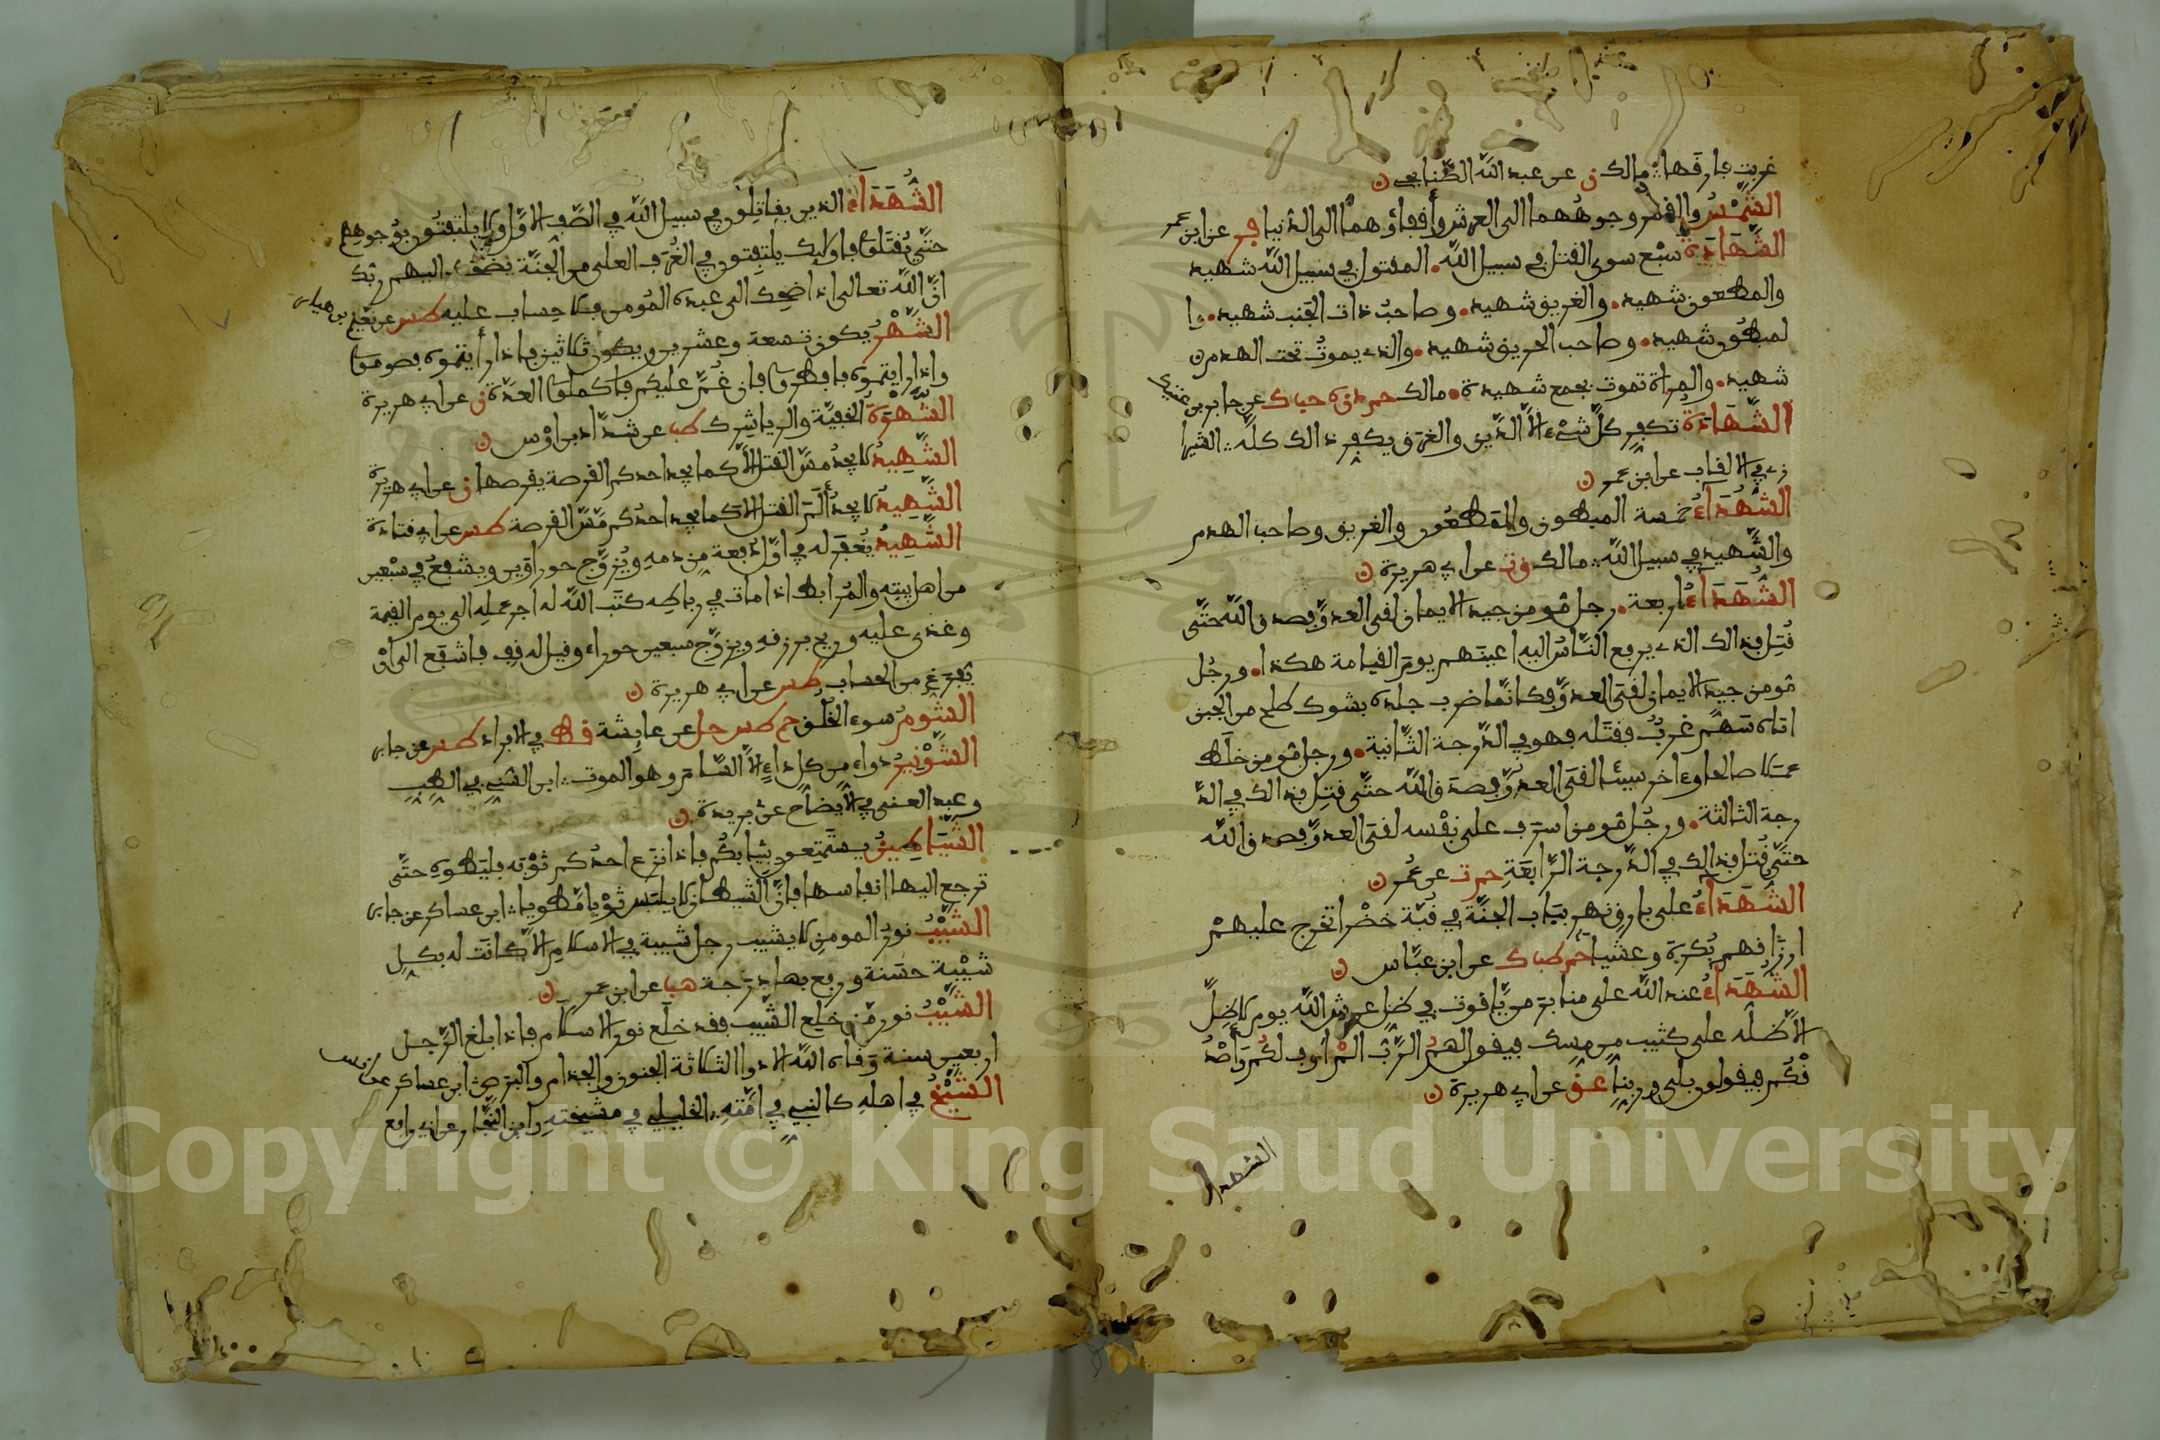 غربت فارقها مالك ن عن عبد الله الصنابحي ن
الشمس والقمر وجوههما الى العرش وأقفاؤهما الى الدنيا فر عن ابن عمر
الشهادة سبع سوى القتل في سبيل الله المقتول في سبيل الله شهيد
والمطعون شهيد والغريق شهيد وصاحب ذات الجنب شهيد وا
لمبطون شهيد وصاحب الحريق شهيد والذي يموت تحت الهدم
شهيد والمرأة تموت بجمع شهيدة مالك حم د ن ه حب ك عن جابر بن عتيك
الشهادة تكفر كل شيء الا الدين والغرق يكفر ذالك كله الشيرا
زي في الالقاب عن ابن عمر ن
الشهداء خمسة المبطون والمطعون والغريق وصاحب الهدم
والشهيد في سبيل الله مالك ق ت عن ابي هريرة ن
الشهداء اربعة رجل مؤمن جيد الايمان لقي العدو فصدق الله حتى
قتل فذالك الذي يرفع الناس اليه اعينهم يوم القيامة هكذا ورجل
مؤمن جيد الايمان لقي العدو فكانما ضرب جلده بشوك طلح من الجبن
اتاه سهم غرب فقتله فهو في الدرجة الثانية ورجل مؤمن خلط
عملا صالحا وءاخر سيئا لقي العدو فصدق الله حتى قتل فذالك في الد
رجة الثالثة ورجل مؤمن اسرف على نفسه لقي العدو فصدق الله
حتى قتل فذالك في الدرجة الرابعة حم ت عن عمر ن
الشهداء على بارق نهر بباب الجنة في قبة خضرا تخرج عليهم
ارزاقهم بكرة وعشيا حم طب ك عن ابن عباس ن
الشهداء عند الله على منابر من ياقوت في ظل عرش الله يوم لا ظل
الا ظله على كثيب من مسك فيقول لهم الرب الم اوف لكم وأصد
قكم فيقولون بلى وربنا عق عن ابي هريرة ن
الشهداء
الشهداء الذين يقاتلون في سبيل الله في الصف الاول ولا يلتفتون بوجوههم
حتى يقتلوا فاولئك يلتقون في الغرف العلى من الجنة يضحك اليهم ربك
ان الله تعالى اذا ضحك الى عبده المومن فلا حساب عليه طس عن نعيم بن هبار
الشهر يكون تسعة وعشرين ويكون ثلاثين فاذا رأيتموه فصوموا
واذا رايتموه فافطروا فان غم عليكم فاكملوا العدة ن عن ابي هريرة
الشهوة الخفية والريا شرك طب عن شداد بن اوس ن
الشهيد لا يجد مس القتل الا كما يجد احدكم القرصة يقرصها ن عن ابي هريرة
الشهيد لا يجد ألم القتل الا كما يجد احدكم مس القرصة طس عن ابي قتادة
الشهيد يغفر له في اول دفعة من دمه ويزوج حوراوين ويشفع في سبعين
من اهل بيته والمرابط اذا مات في رباطه كتب الله له اجر عمله الى يوم القيمة
وغذي عليه وريح برزقه ويزوج سبعين حوراء وقيل له قف فاشفع الى ان
يفرغ من الحساب طس عن ابي هريرة ن
الشوم سوء الخلق حم طس حل عن عايشة قط في الافراد طس عن جابر
الشونيز دواء من كل داء الا السام وهو الموت ابن السني في الطب
وعبد الغني في الايضاح عن بريدة ن
الشياطين يستمتعون بثيابكم فاذا نزع احدكم ثوبه فليطوه حتى
ترجع اليها انفاسها فان الشيطان لا يلبس ثوبا مطويا ابن عساكر عن جابر
الشيب نور المومن لا يشيب رجل شيبة في الاسلام الا كانت له بكل
شيبة حسنة ورفع بها درجة هب عن ابن عمر ن
الشيب نور من خلع الشيب فقد خلع نور الاسلام فاذا بلغ الرجل
اربعين سنة وقاه الله الادوا الثلاثة الجنون والجذام والبرص ابن عساكر عن انس
الشيخ في اهله كالنبي في امته الخليلي في مشيخته وابن النجار عن ابي رافع